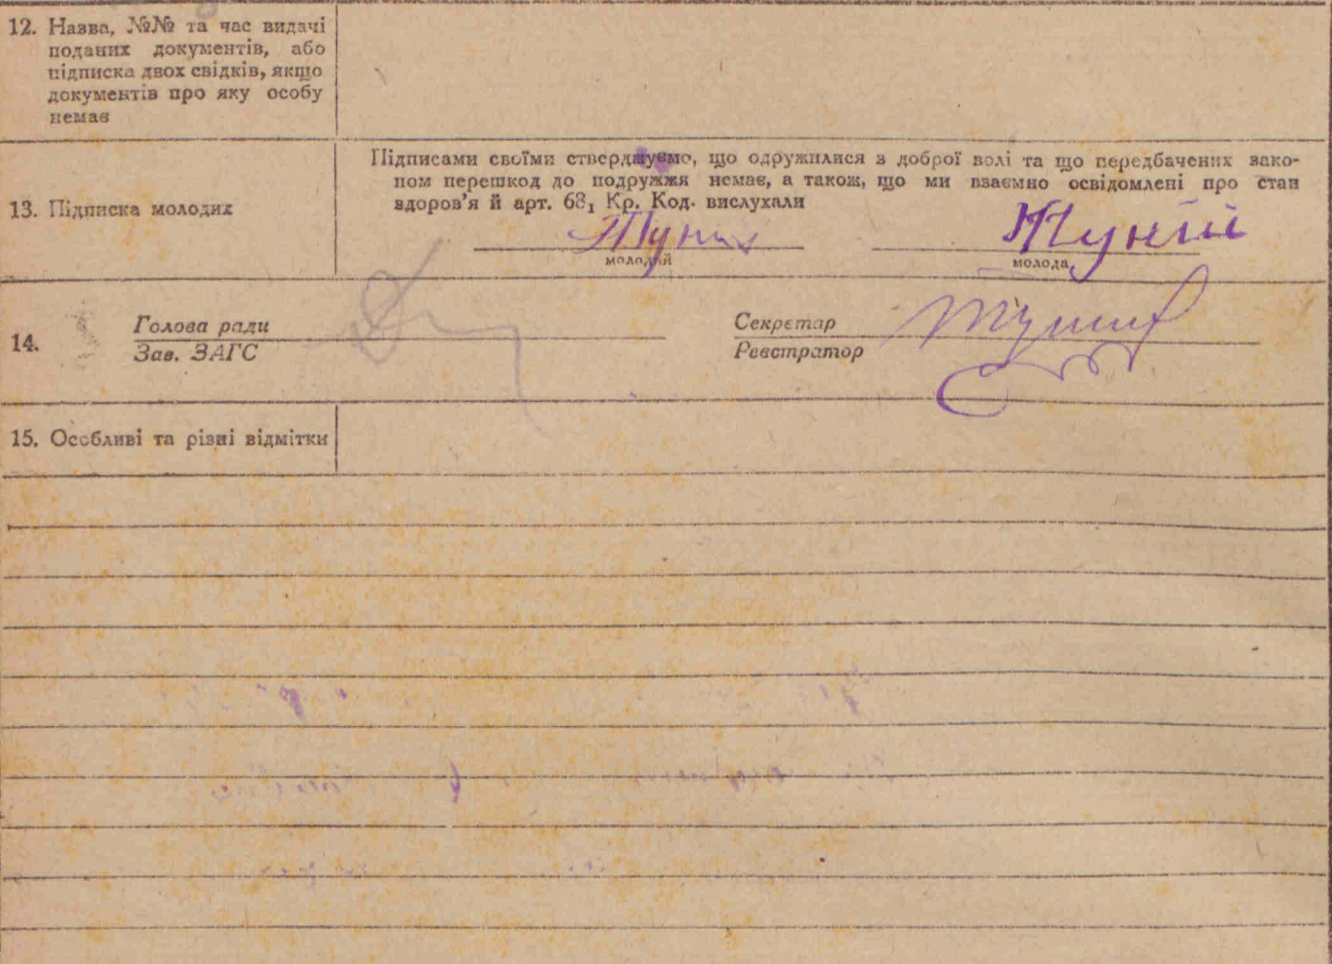 12. Назва, №№ та час видачі
поданих документів, або
підписка двох свідків, якщо
документів про яку особу
немає
13. Підписка молодих
Підписами своїми стверджуємо, що одружилися з доброї волі та що передбачених зако-
ном перешкод до подружжя немає, а також, що ми взаємно освідомлені про стан
здоров'я й арт. 68₁ Кр. Код. вислухали
молодий
молода
14.
Голова ради
Зав. ЗАГС
Секретар
Реєстратор
15. Особливі та різні відмітки